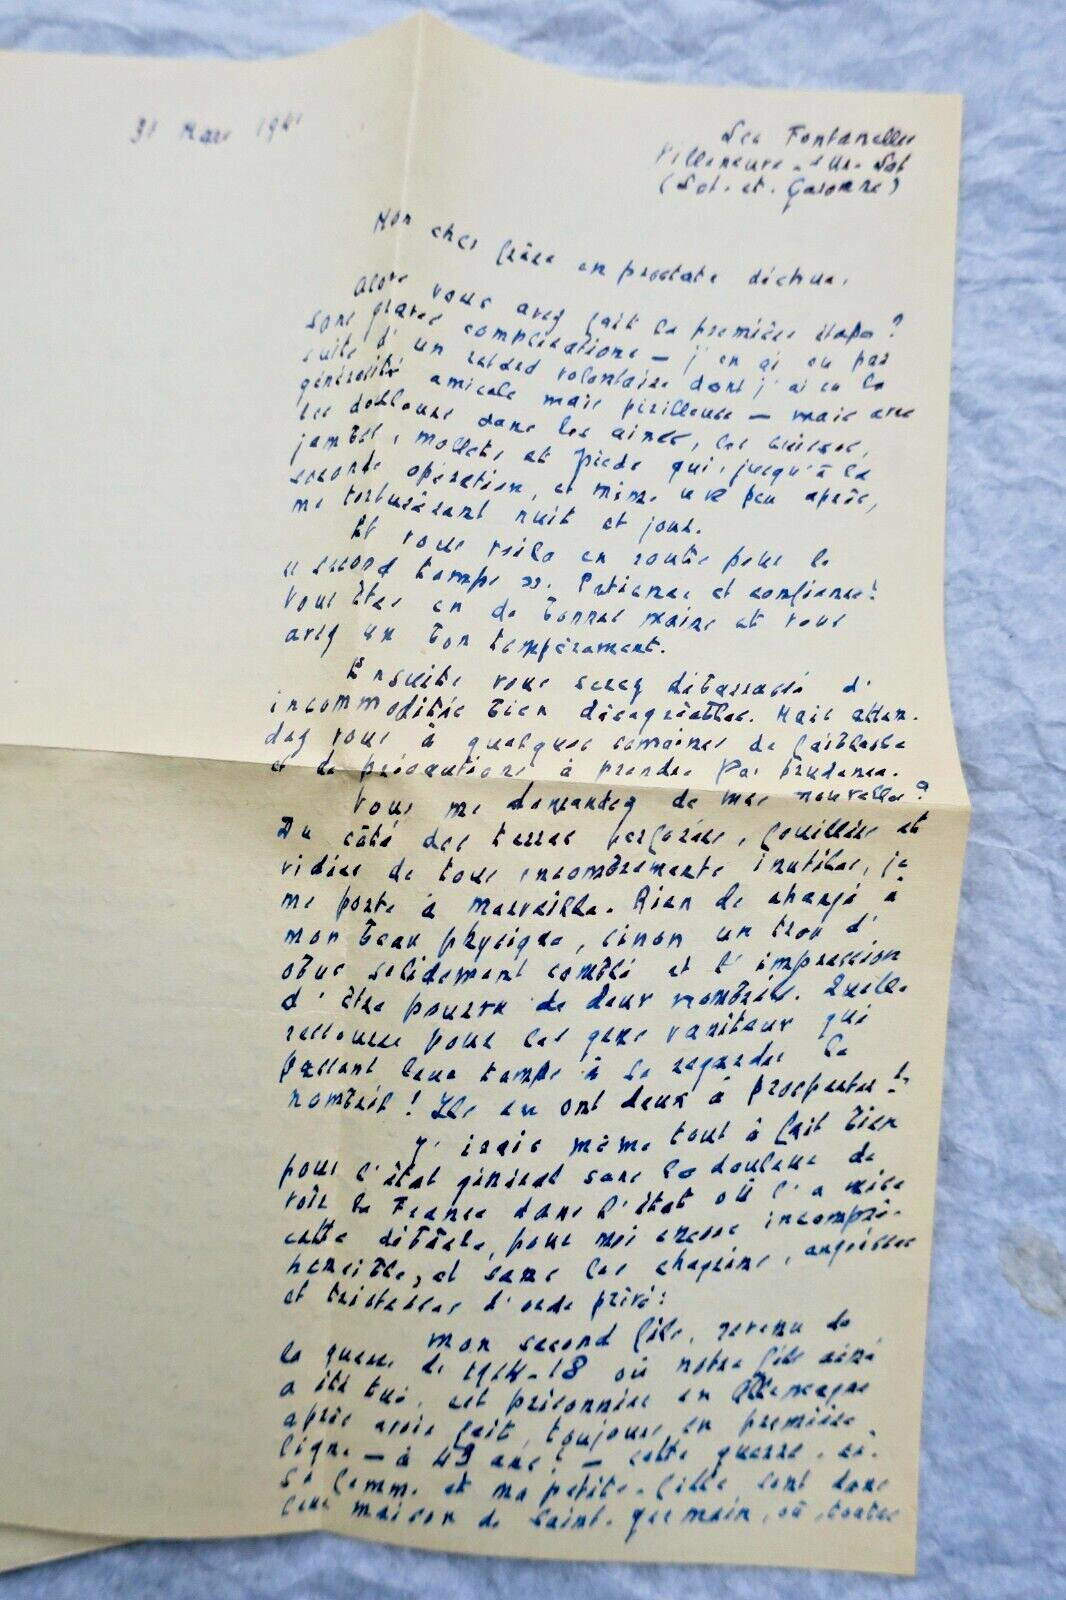 31 Mars 1941
Les Fontanelles
Villeneuve-sur-Lot
(Lot-et-Garonne)
Mon cher frère en prostate déchue,
Alors vous avez fait la première étape ?
Sans graves complications — j'en ai eu par
suite d'un retard volontaire dont j'ai eu la
générosité amicale mais périlleuse — mais avec
des douleurs dans les aines, les cuisses,
jambes, mollets, et pieds qui, jusqu'à la
seconde opération, et même un peu après,
me torturèrent nuit et jour.
Et vous voilà en route pour le
« second temps ». Patience et confiance !
Vous êtes en de bonnes mains et vous
avez un bon tempérament.
Ensuite vous serez débarrassé d'
incommodités bien désagréables. Mais atten-
dez vous à quelques semaines de faiblesse
et de précautions à prendre par prudence.
Vous me demandez de mes nouvelles ?
Du côté des terres perforées, fouillées et
vidées de tous encombrements inutiles, je
me porte à merveille. Rien de changé à
mon beau physique, sinon un trou d'
obus solidement comblé et l'impression
d'être pourvu de deux nombrils. Quelle
ressource pour les gens vaniteux qui
passent leur temps à se regarder le
nombril ! Ils en ont deux à prospecter !
J'irais même tout à fait bien
pour l'état général sans la douleur de
voir la France dans l'état où l'a mise
cette débâcle, pour moi encore incompré-
hensible, et sans les chagrins, angoisses
et tristesses d'ordre privé :
mon second fils, revenu de
la guerre de 1914-18 où notre fils aîné
a été tué, est prisonnier en Allemagne
après avoir fait, toujours en première
ligne — à 49 ans ! — cette guerre-ci.
Sa femme et ma petite-fille sont dans
leur maison de Saint-Germain, où, toutes